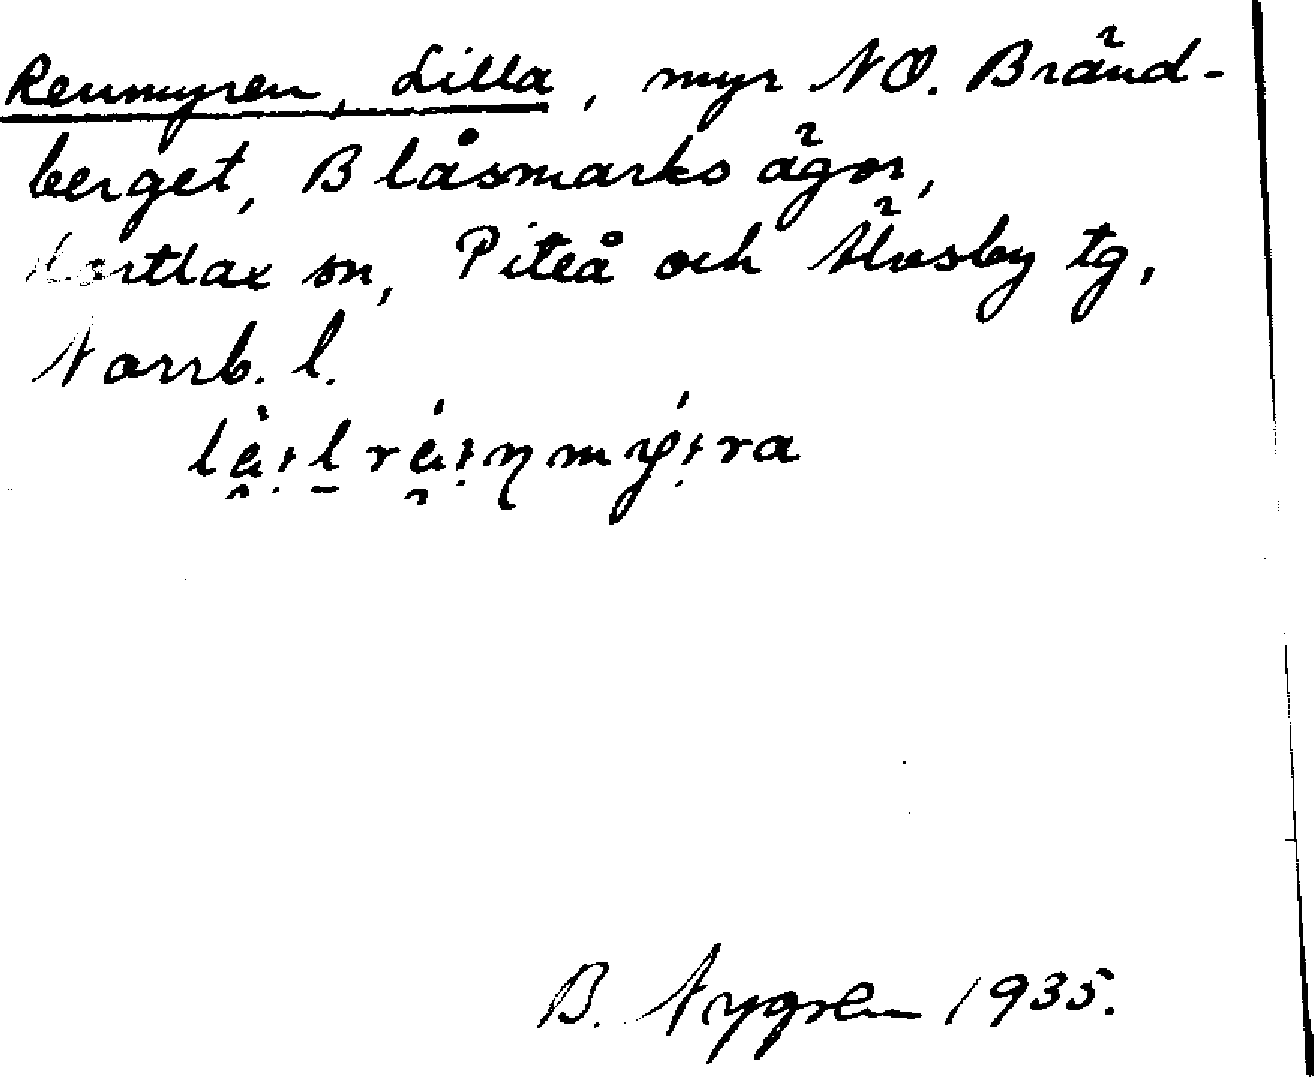 Renmyren, Lilla, myr NO. Bränd-
berget, Blåsmarks ägor,
Hortlax sn, Piteå och Älvsby tg,
Norrb. l.
B. Nygren 1935.